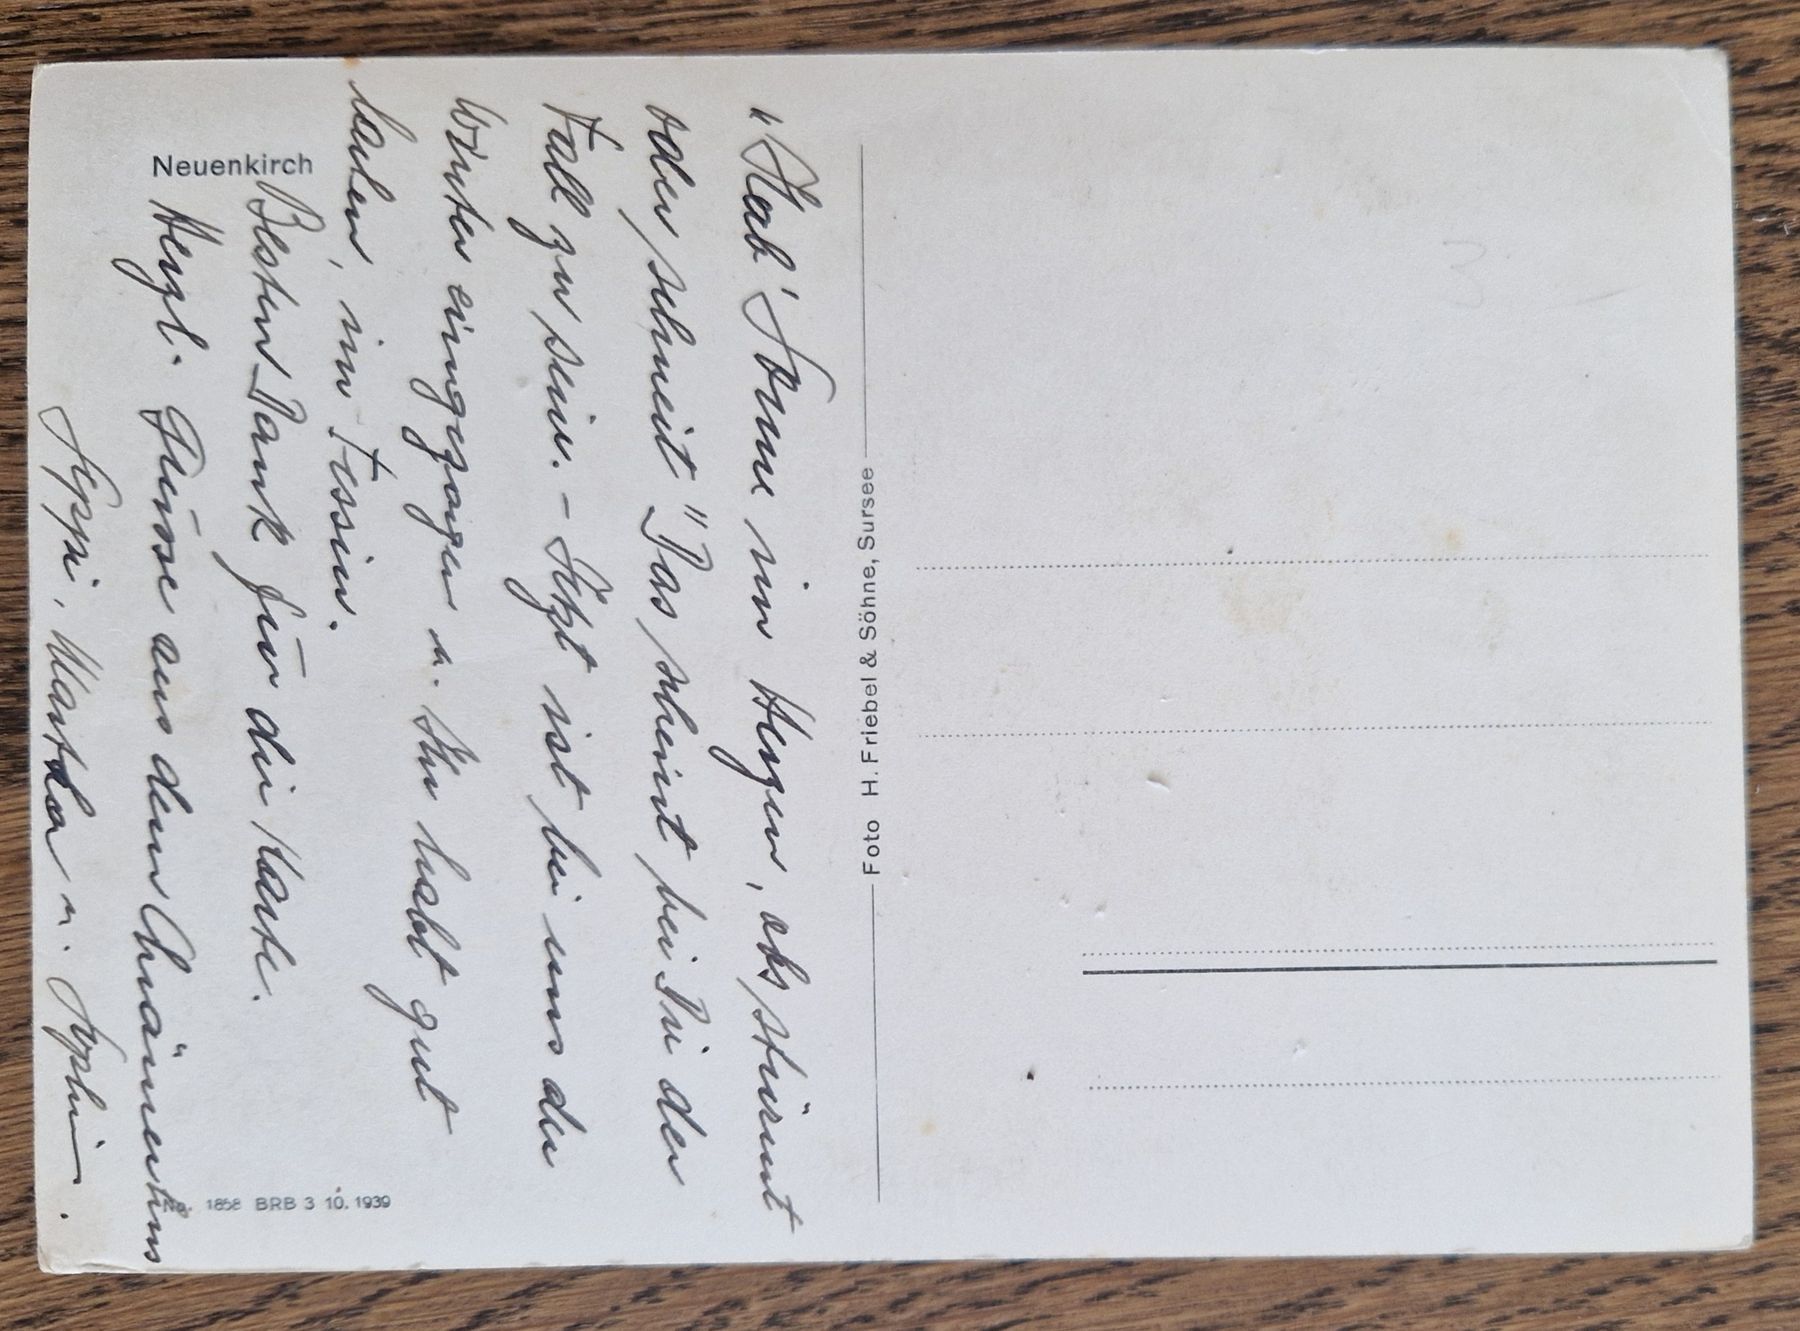 Neuenkirch
"Hab' Sonne im Herzen, obs stürmt
oder schneit" Das scheint bei Dir der
Fall zu sein. – Jetzt ist bei uns der
Winter eingezogen u. Ihr habt gut
lachen, im Tessin.
Besten Dank für die Karte.
Herzl. Grüsse aus dem
Seppi, Martha u. Sophie.
Foto H. Friebel & Söhne, Sursee
No. 1858 BRB 3 10. 1939